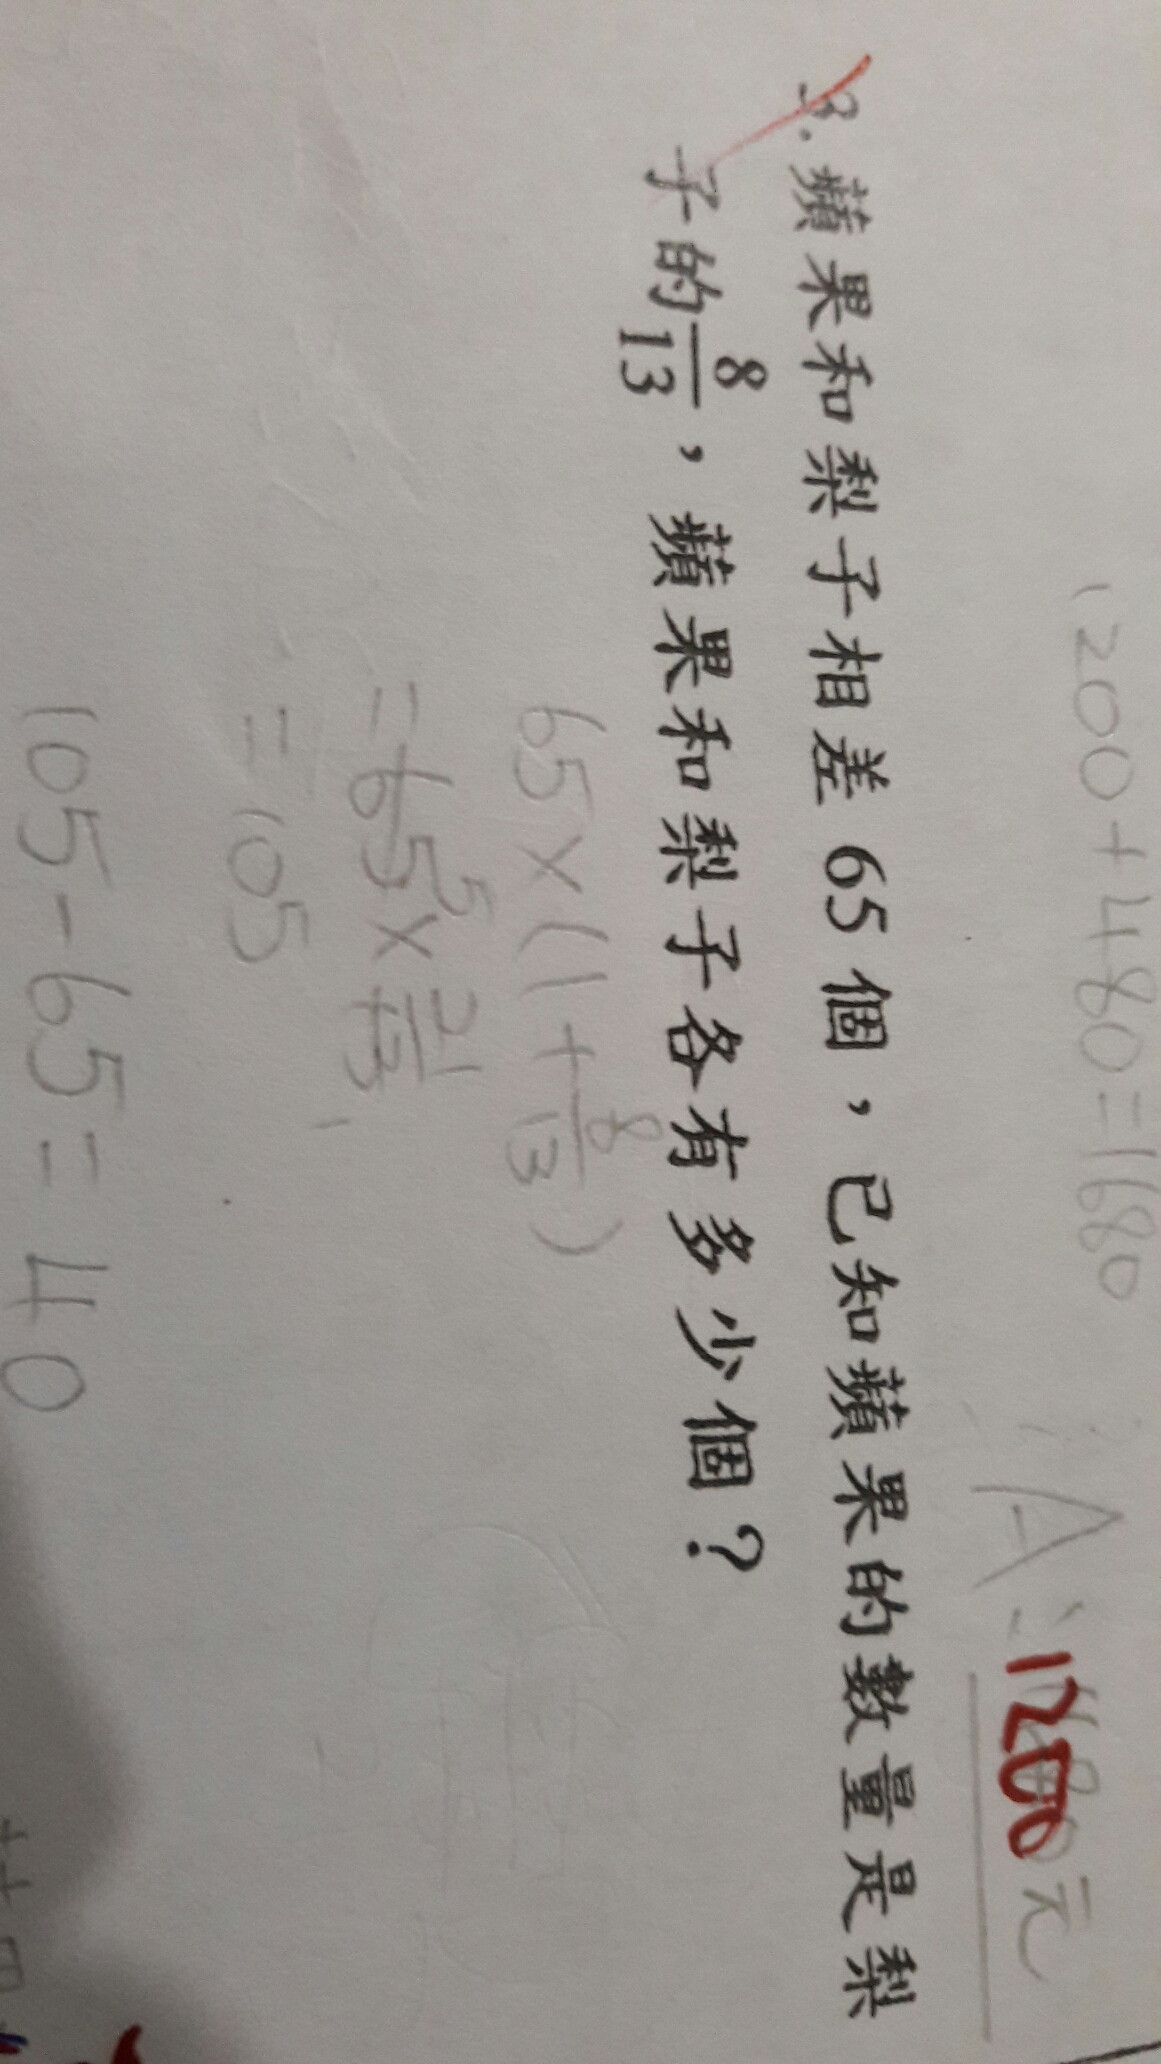 1200+480=1680
A:1200元
3.蘋果和梨子相差65個，已知蘋果的數量是梨
子的8/13，蘋果和梨子各有多少個？
65×(1+8/13)
=65 5×21/13 1
=105
105-65=40